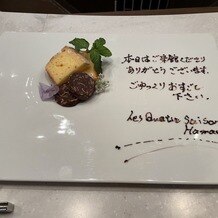 本日はご来館くださり
ありがとうございます。
ごゆっくりおすごし
下さい。
Les Quatre Saisons